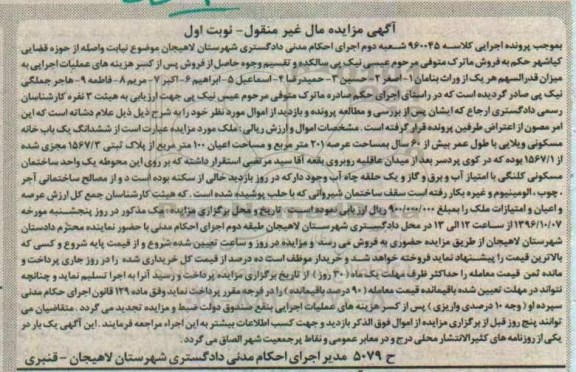 آگهی مزایده مال غیر منقول- نوبت اول
بموجب پرونده اجرایی کلاسه ۹۶۰۰۴۵ شعبه دوم اجرای احکام مدنی دادگستری شهرستان لاهیجان موضوع نیابت واصله از حوزه قضایی
کیاشهر حکم به فروش ماترک متوفی مرحوم عیسی نیک پی سالکده و تقسیم وجوه حاصل از فروش پس از کسر هزینه های عملیات اجرایی به
میزان قدرالسهم هر یک از وراث بنامان ۱- اصغر ۲- حسین ۳- حمیدرضا ۴- اسماعیل ۵- ابراهیم ۶- اکبر ۷- مریم ۸- فاطمه ۹- هاجر جملگی
نیک پی صادر گردیده است که در راستای اجرای حکم صادره ماترک متوفی مرحوم عیسی نیک پی جهت ارزیابی به هیئت ۳ نفره کارشناسان
رسمی دادگستری ارجاع که ایشان پس از بررسی و مطالعه پرونده و بازدید از اموال مورد نظر خود را به شرح ذیل ذیل علام دشاته است که این
امر مصون از اعتراض طرفین پرونده قرار گرفته است. مشخصات اموال و ارزش ریالی: ملک مورد مزایده عبارت است از ششدانگ یک باب خانه
مسکونی ویلایی با طول عمر بیش از ۶۰ سال بمساحت عرصه ۲۰۱ متر مربع و مساحت اعیان ۱۰۰ متر مربع از پلاک ثبتی ۱۵۶۷/۳ مجزی شده
از ۱۵۶۷/۱ بوده که در کوی پردسر بعد از میدان عاقلیه روبروی بقعه آقا سید مرتضی استقرار داشته که بر روی این محوطه یک واحد ساختمان
مسکونی کلنگی با امتیاز آب و برق و گاز و یک حلقه چاه آب وجود دارکه در روز بازدید خالی از سکنه بوده است و از مصالح ساختمانی آجر
، چوب ، الومینیوم و غیره بکار رفته است سقف ساختمان شیروانی که با حلب پوشیده شده است . که هیئت کارشناسان جمع کل ارزش عرصه
و اعیان و امتیازات ملک را بمبلغ ۹۰۰/۰۰۰/۰۰۰ ریال ارزیابی نموده است. تاریخ و محل برگزاری مزایده: ملک مذکور در روز پنجشنبه مورخه
۱۳۹۶/۱۰/۰۷ از ساعت ۱۲ الی ۱۳ در محل دادگستری شهرستان لاهیجان طبقه دوم اجرای احکام مدنی با حضور نماینده محترم دادستان
شهرستان لاهیجان از طریق مزایده حضوری به فروش می رسد و مزایده در روز و ساعت تعیین شده شروع و از قیمت پایه شروع و کسی که
بالاترین قیمت را پیشنهاد نماید فروخته خواهد شد و خریدار موظف است ده درصد از قیمت کل خریداری شده را در روز جاری پرداخت و
مانده ثمن قیمت معامله را حداکثر ظرف مهلت یک ماه (۳۰ روز ) از تاریخ برگزاری مزایده پرداخت و رسید آنرا به اجرا تسلیم نماید و چنانچه
نتواند در مهلت تعیین شده باقیمانده قیمت معامله ( ۹۰ درصد باقیمانده ) را در فرجه مقرر پرداخت نماید وفق ماده ۱۲۹ قانون اجرای احکام مدنی
سپرده او ( وجه ۱۰ درصدی واریزی ) پس از کسر هزینه های عملیات اجرایی بنفع صندوق دولت ضبط و مزایده تجدید می گردد . متقاضیان می
توانند پنج روز قبل از برگزاری مزایده از اموال فوق الذکر بازدید و جهت کسب اطلاعات بیشتر به این اجراء مراجعه فرمایند . این آگهی یک بار در
یکی از روزنامه های کثیرالانتشار محلی درج و در معابر عمومی و نقاط پرجمعیت شهر الصاق می گردد.
ح ۵۰۷۹ مدیر اجرای احکام مدنی دادگستری شهرستان لاهیجان - قنبری